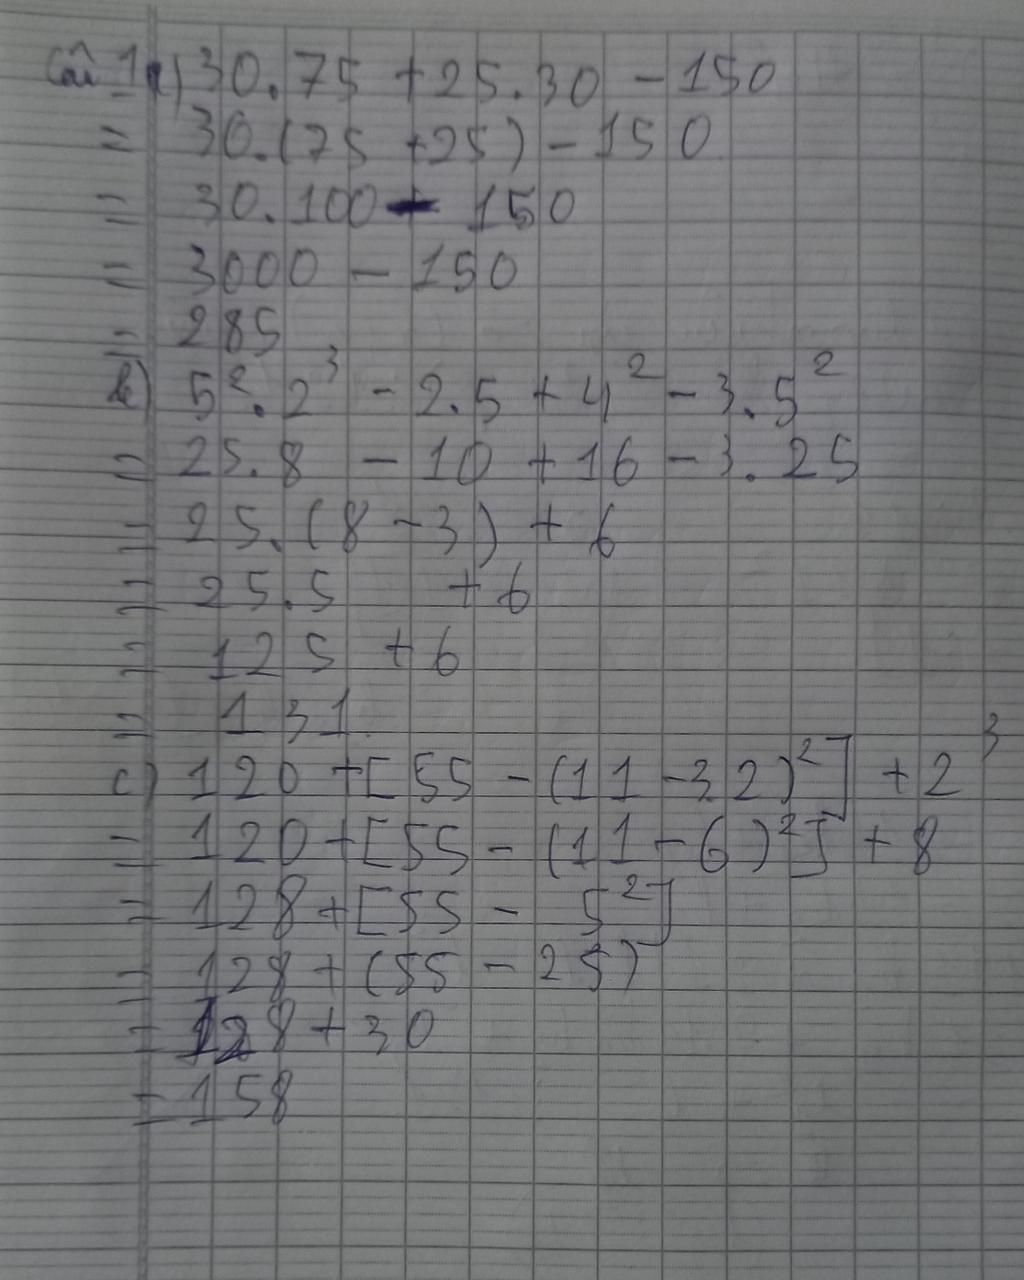 Câu 1 a) 30.75 + 25.30 - 150
= 30.(75 + 25) - 150
= 30.100 - 150
= 3000 - 150
= 285
b) 5².2³ - 2.5 + 4² - 3.5²
= 25.8 - 10 + 16 - 3.25
= 25.(8 - 3) + 6
= 25.5 + 6
= 125 + 6
= 131
c) 120 + [55 - (11 - 32)²] + 2³
= 120 + [55 - (11 - 6)²] + 8
= 128 + [55 - 5²]
= 128 + (55 - 25)
= 128 + 30
= 158